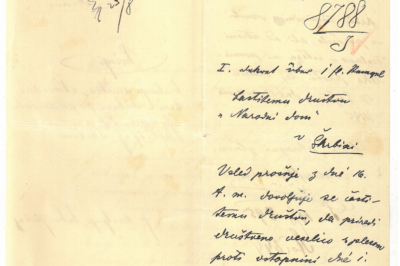 23/8
8788
I. dekret
Častitemu društvu
„Narodni dom"
v Škrbini
Vsled prošnje z dné 16.
t. m. dovoljuje se časti-
temu društvu, da priredi
društveno veselico s plesom
proti vstopnini dné 1.